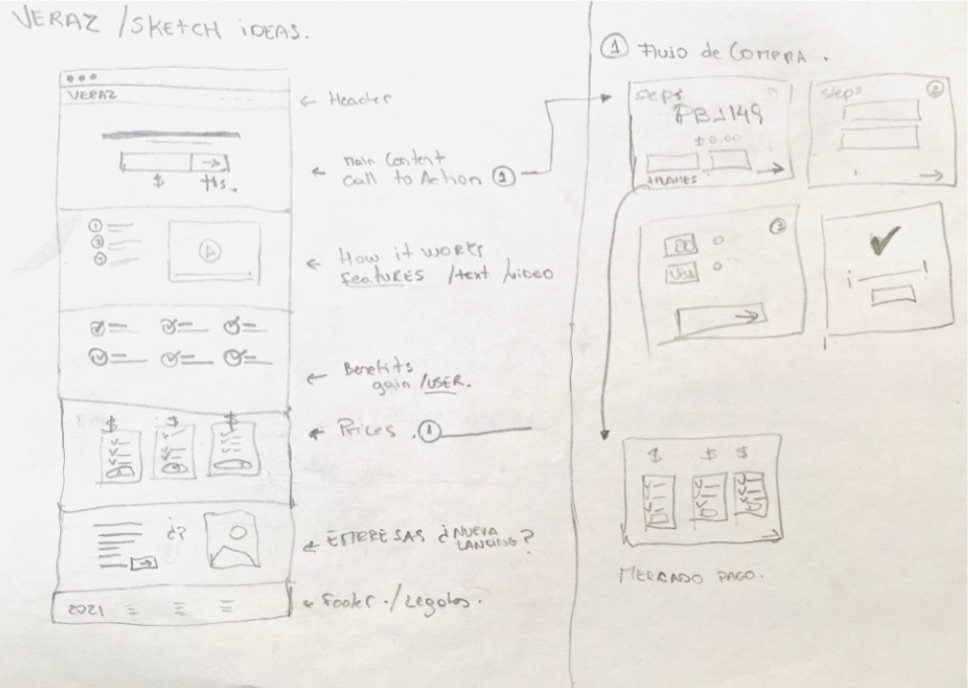 VERAZ / SKETCH iDEAS.
VERAZ
← Header
$
→
main Content
← call to Action ①
①
②
③
← How it works
features / text / video
← Benefits
gain / USER.
$ $ $
← Prices . ①
¿?
← EMPRESAS ¿NUEVA
LANDING?
2021
← Footer . / Legales .
① Flujo de COMPRA .
seps
$0.00
+PLANES
steps ②
③
Visa
¡ !
$ $ $
MERCADO PAGO.